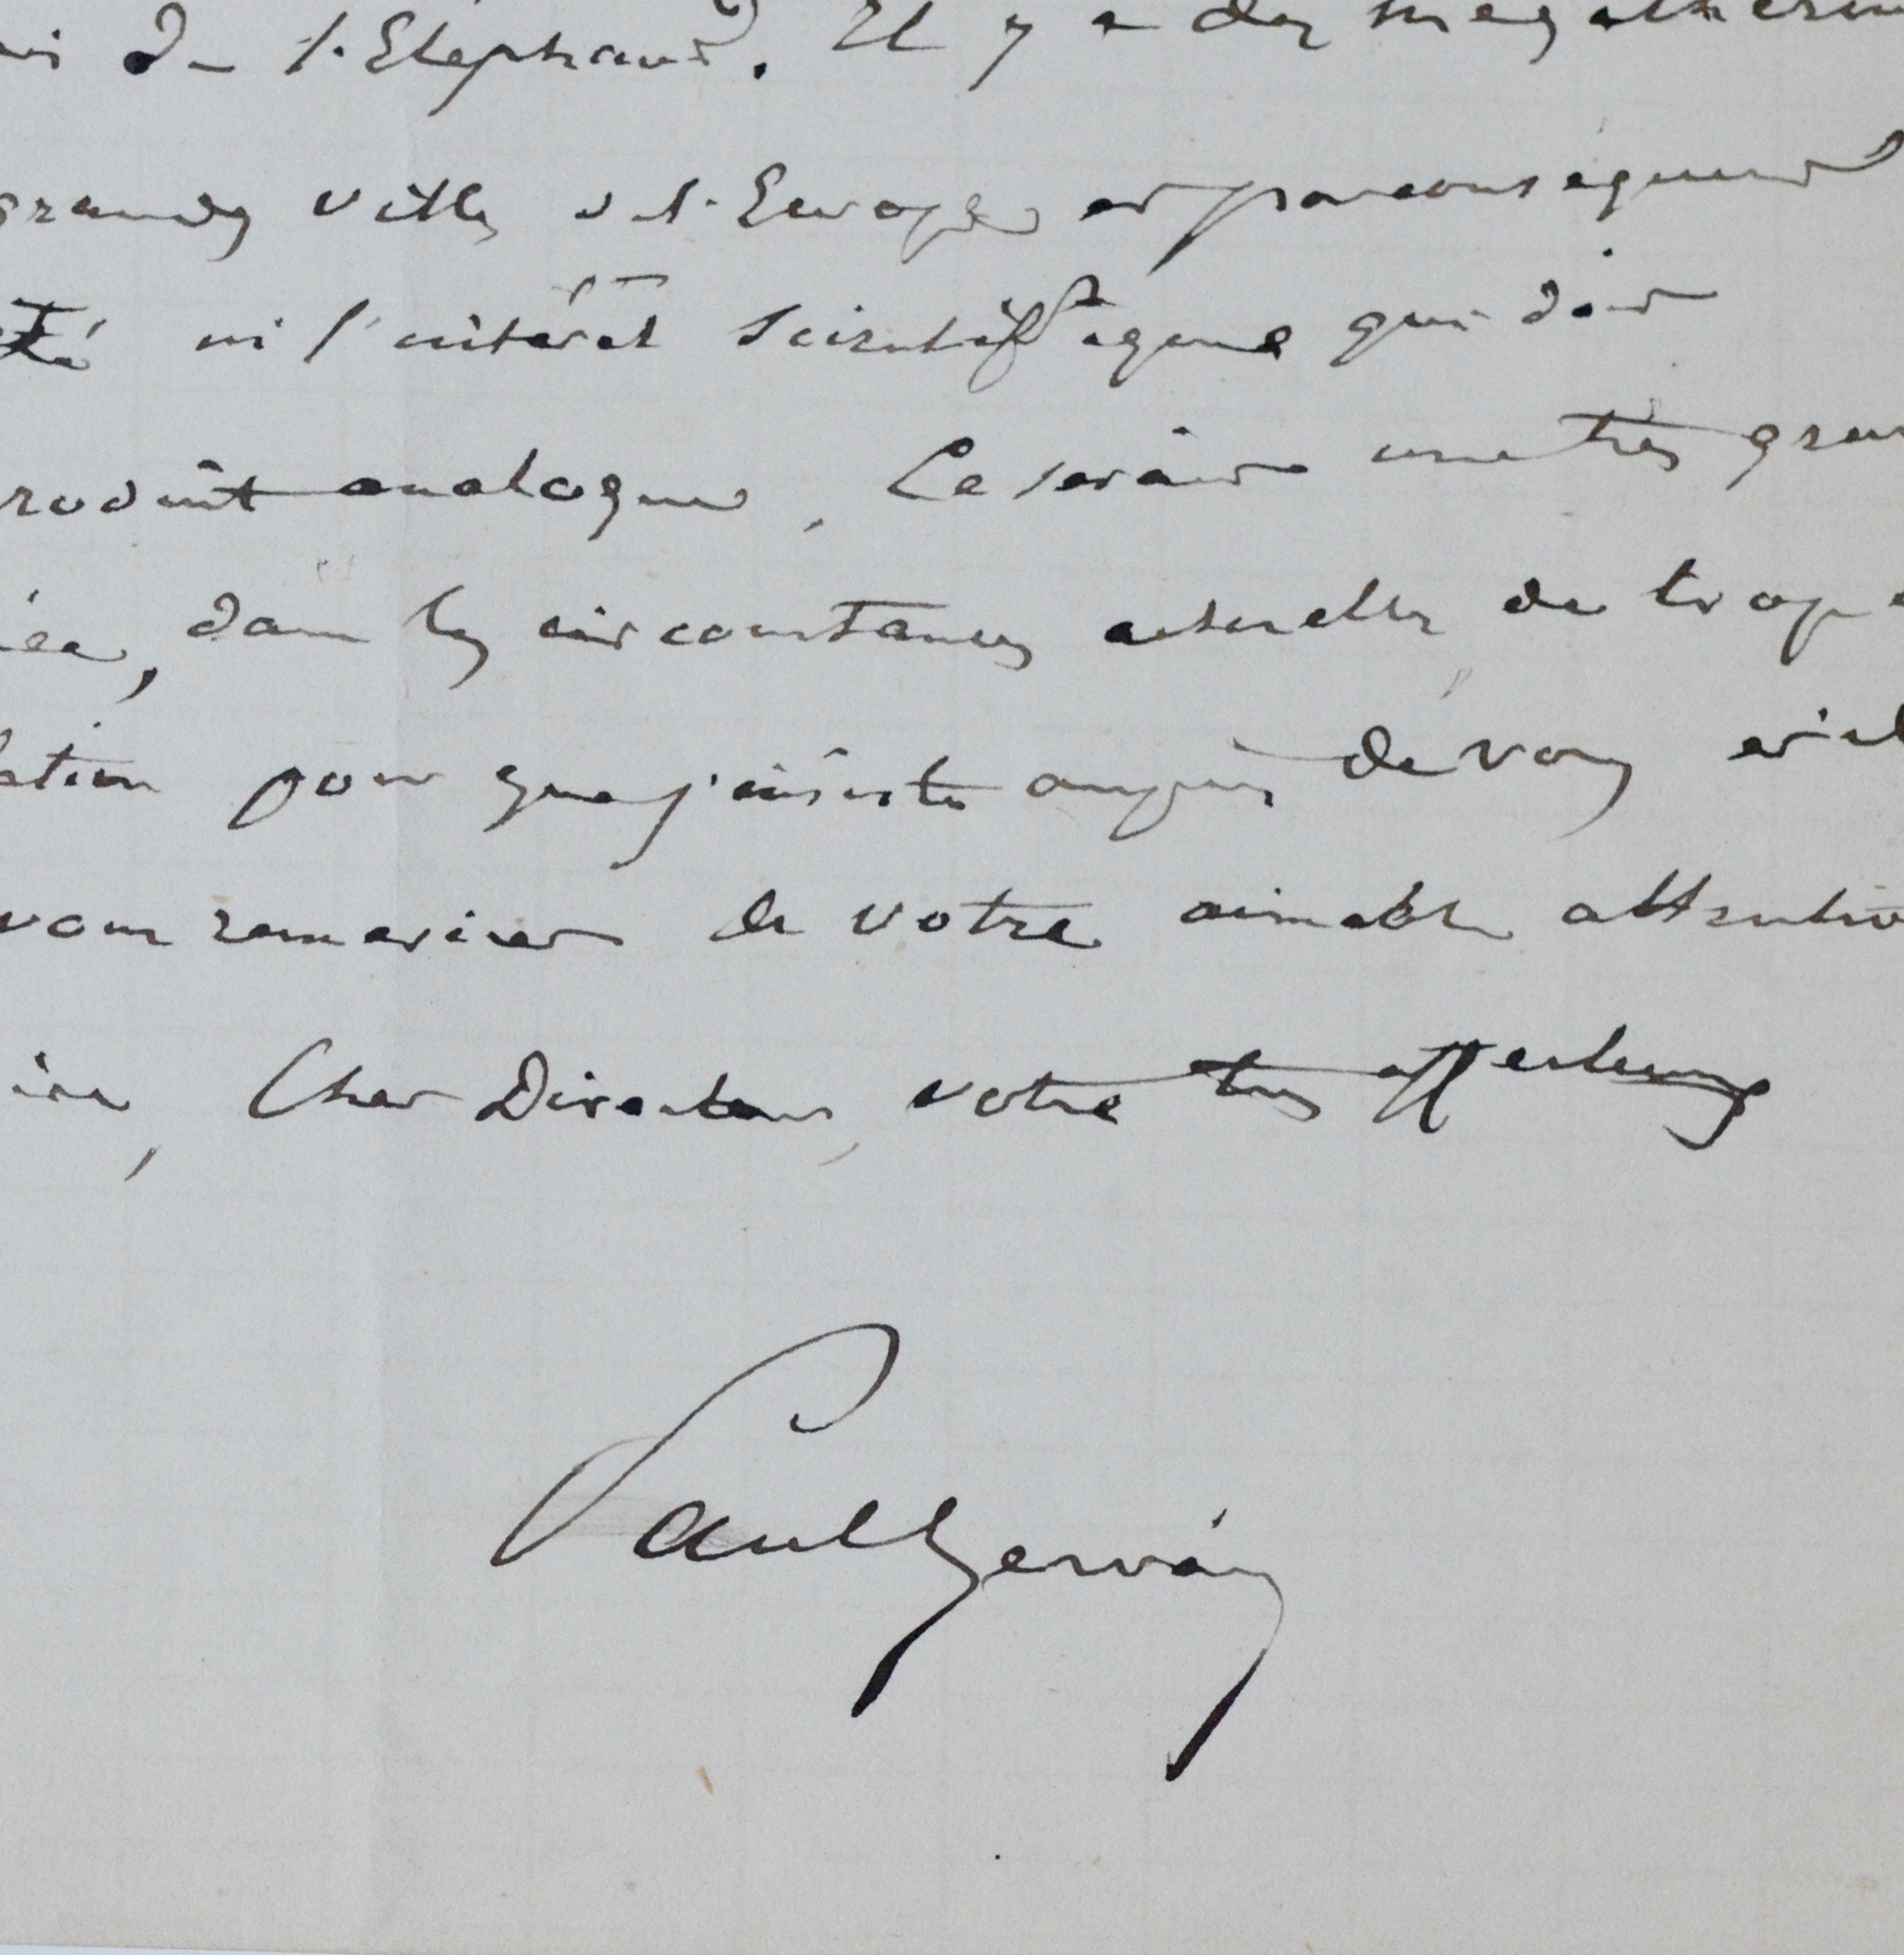 de l'Elephant. Il y a des megatherium
grandes villes de l'Europe et par conséquent
ni l'intérêt scientifique qui doit
produit analogue. Ce serait une très gran
dans les circonstances actuelles, de trop
pour que j'insiste auprès de vous
vous remercier de votre aimable attentio
Cher Directeur, votre très affectueux
Paul Gervais